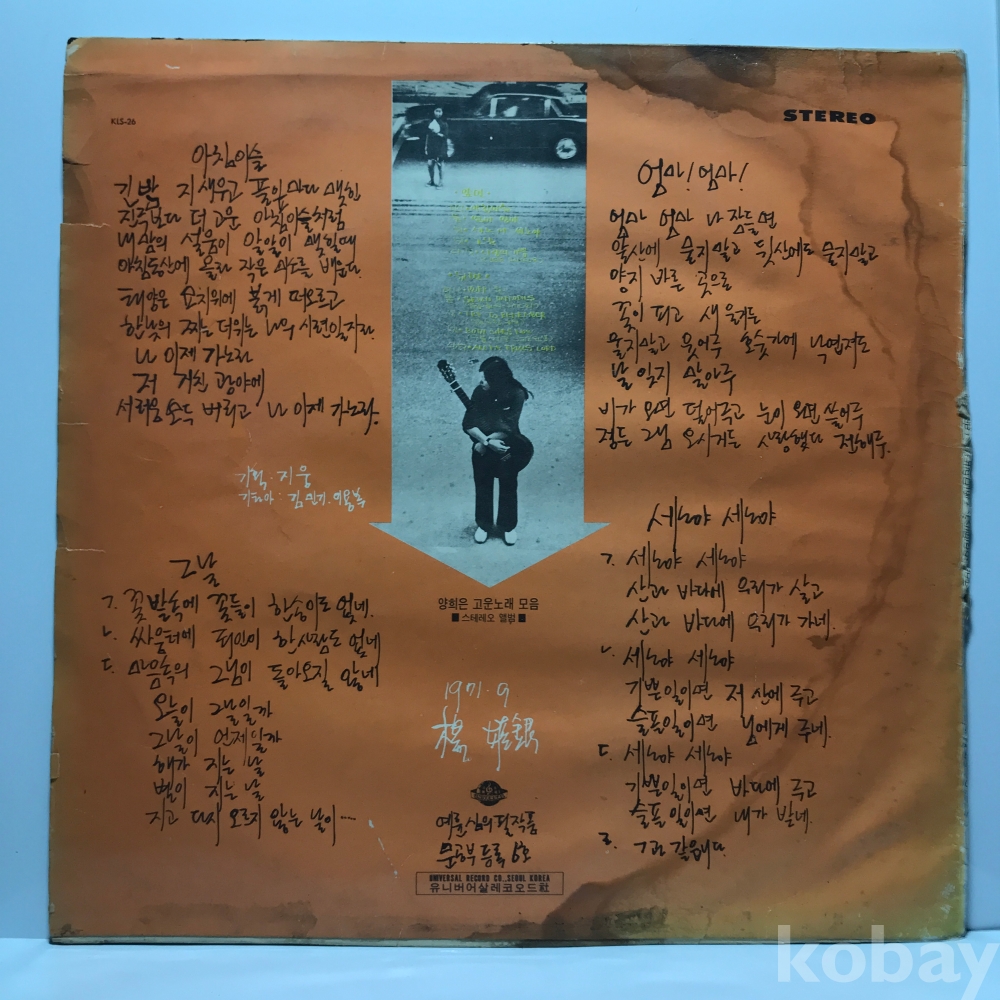 KLS-26
STEREO
아침이슬
긴밤 지새우고 풀잎마다 맺힌
진주보다 더 고운 아침이슬처럼
내 맘의 설움이 알알이 맺힐때
아침동산에 올라 작은 미소를 배운다.
태양은 묘지위에 붉게 떠오르고
한낮의 찌는 더위는 나의 시련일지라
나 이제 가노라
저 거친 광야에
서러움 모두 버리고 나 이제 가노라.
기획·지웅
기타아: 김민기. 이용복
그날
ㄱ. 꽃밭속에 꽃들이 한송이도 없네.
ㄴ. 싸움터에 죄인이 한사람도 없네
ㄷ. 마음속의 그님이 돌아오질 않네
오늘이 그날일까
그날이 언제일까
해가 지는 날
별이 지는 날
지고 다시 오르지 않는 날이....
양희은 고운노래 모음
■ 스테레오 앨범 ■
1971.9
楊姬銀
예륜심의필작품
문공부 등록 6호
UNIVERSAL RECORD CO.,SEOUL KOREA
유니버어살레코오드社
엄마! 엄마!
엄마 엄마 나 잠들면
앞산에 묻지말고 뒷산에도 묻지말고
양지 바른 곳으로
꽃이 피고 새 울거든
울지말고 웃어주 호숫가에 낙엽져도
날 잊지 말아주
비가 오면 덮어주고 눈이 오면 쓸어주
정든 그님 오시거든 사랑했다 전해주.
세노야 세노야
ㄱ. 세노야 세노야
산과 바다에 우리가 살고
산과 바다에 우리가 가네.
ㄴ. 세노야 세노야
기쁜일이면 저 산에 주고
슬픈일이면 님에게 주네.
ㄷ. 세노야 세노야
기쁜일이면 바다에 주고
슬픈일이면 내가 받네.
ㄹ. ㄱ과 같읍니다.
kobay